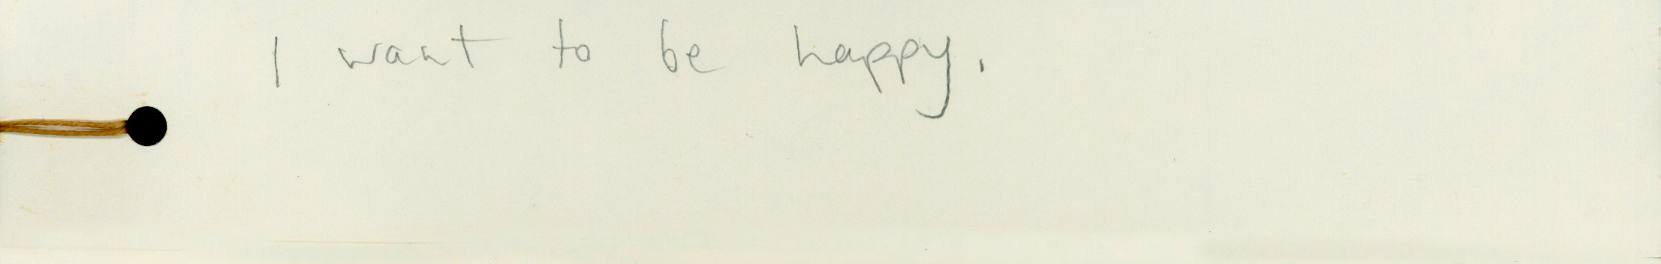 I want to be happy.